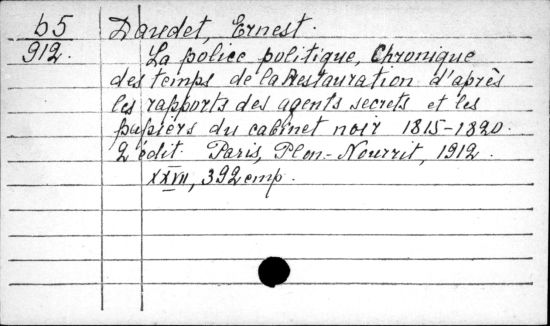 b5 Daudet, Ernest.
912. La police politique, Chronique
des temps de la Restauration d'après
les rapports des agents secrets et les
papiers du cabinet noir 1815-1820.
2 édit. Paris, Plon-Nourrit, 1912.
XXVII, 392